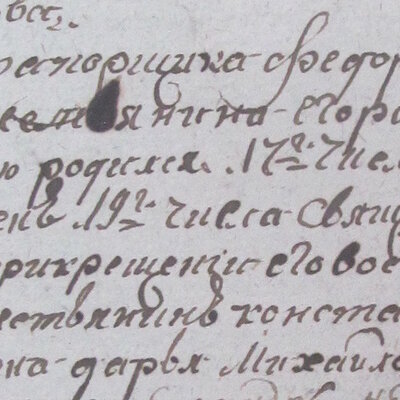 ва
рапорщика Федор
янина Егора
ю родился 17г числ
ень 19г числа свящ
прикрещениі его вос
ествянинъ конста
на дарья Михайло